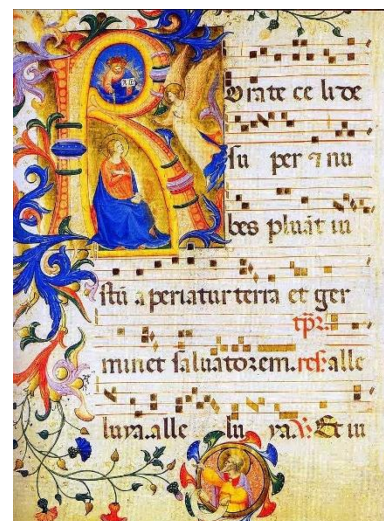 Rorate ce li de
su per ⁊ nu
bes pluāt iu
stū a periatur terra et ger
tp̄r.
minet saluatorem. alle
luya. alle lu ya. Et iu